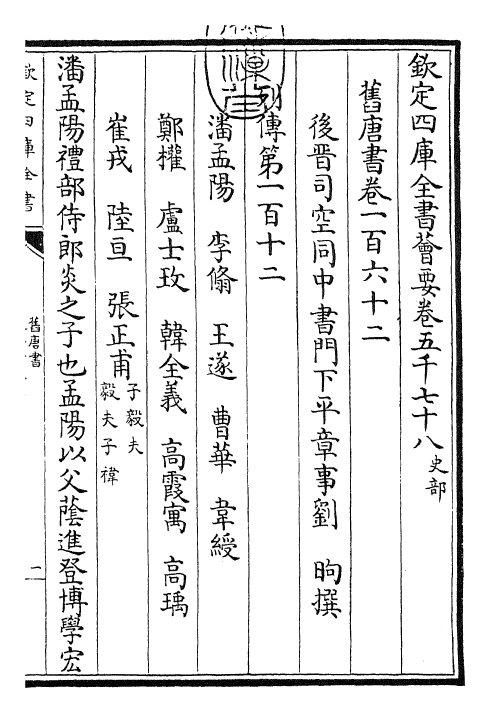 欽定四庫全書薈要卷五千七十八史部
舊唐書卷一百六十二
後晉司空同中書門下平章事劉 昫撰
列傳第一百十二
潘孟陽 李翛 王遂 曹華 韋綬
鄭權 盧士玫 韓全義 高霞寓 高瑀
崔戎 陸亘 張正甫子毅夫
毅夫子禕
潘孟陽禮部侍郎炎之子也孟陽以父蔭進登博學宏
欽定四庫全書
舊唐書
一